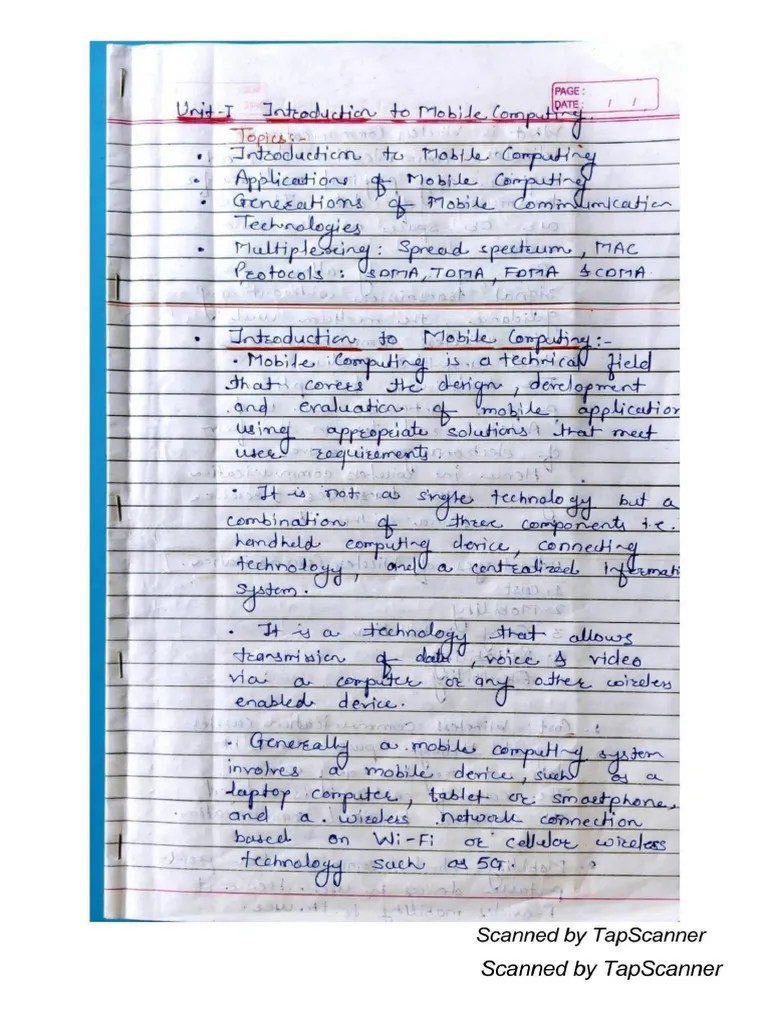 PAGE:
DATE: / /
Unit-I Introduction to Mobile Computing.
Topics:-
• Introduction to Mobile Computing
• Applications of Mobile Computing
• Generations of Mobile Communication
Technologies
• Multiplexing: Spread spectrum, MAC
Protocols: SDMA, TDMA, FDMA & CDMA
• Introduction to Mobile Computing:-
• Mobile Computing is a technical field
that covers the design, development
and evaluation of mobile application
using appropriate solutions that meet
user requirements
• It is not a single technology but a
combination of three components i.e.
handheld computing device, connecting
technology, and a centralized informati
system.
• It is a technology that allows
transmission of data, voice & video
via a computer or any other wireless
enabled device.
• Generally a mobile computing system
involves a mobile device, such as a
laptop computer, tablet or smartphone,
and a wireless network connection
based on Wi-Fi or cellular wireless
technology such as 5G.
Scanned by TapScanner
Scanned by TapScanner